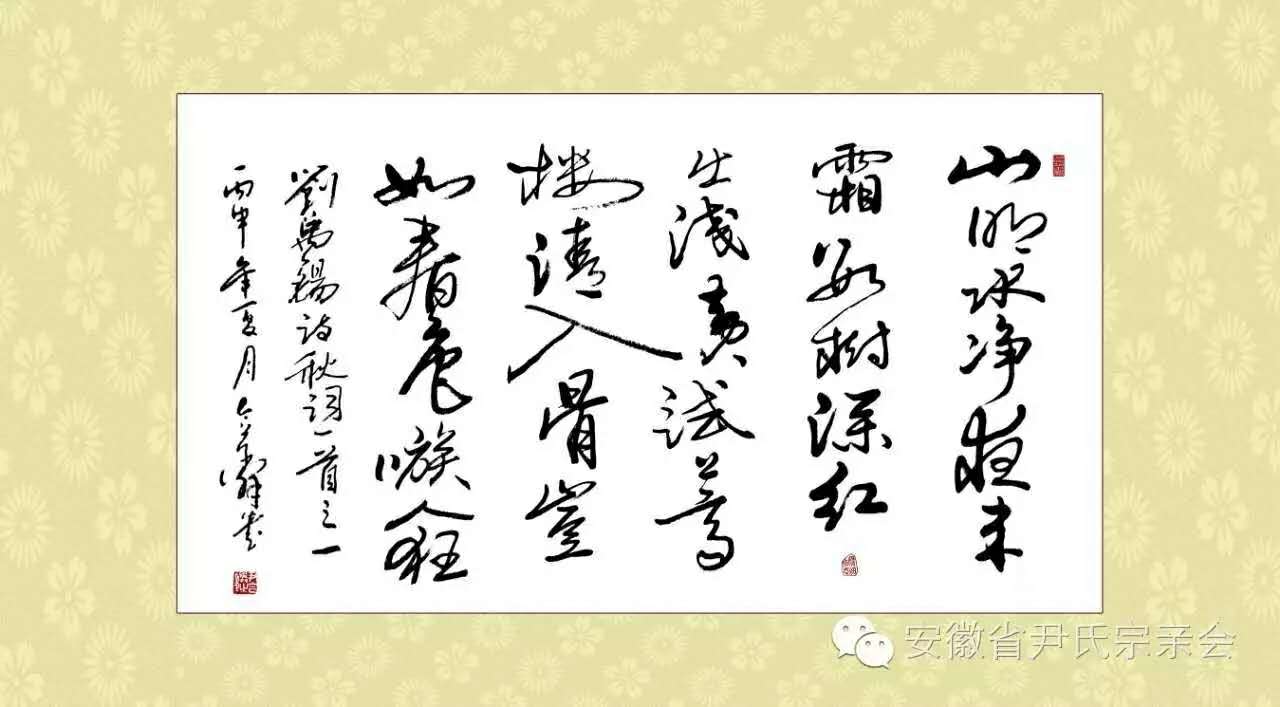 山明水净夜来
霜数树深红
出淺黄试上高
楼清入骨豈
如春色嗾人狂
劉禹錫诗秋词一首之一
丙申年夏月
安徽省尹氏宗亲会